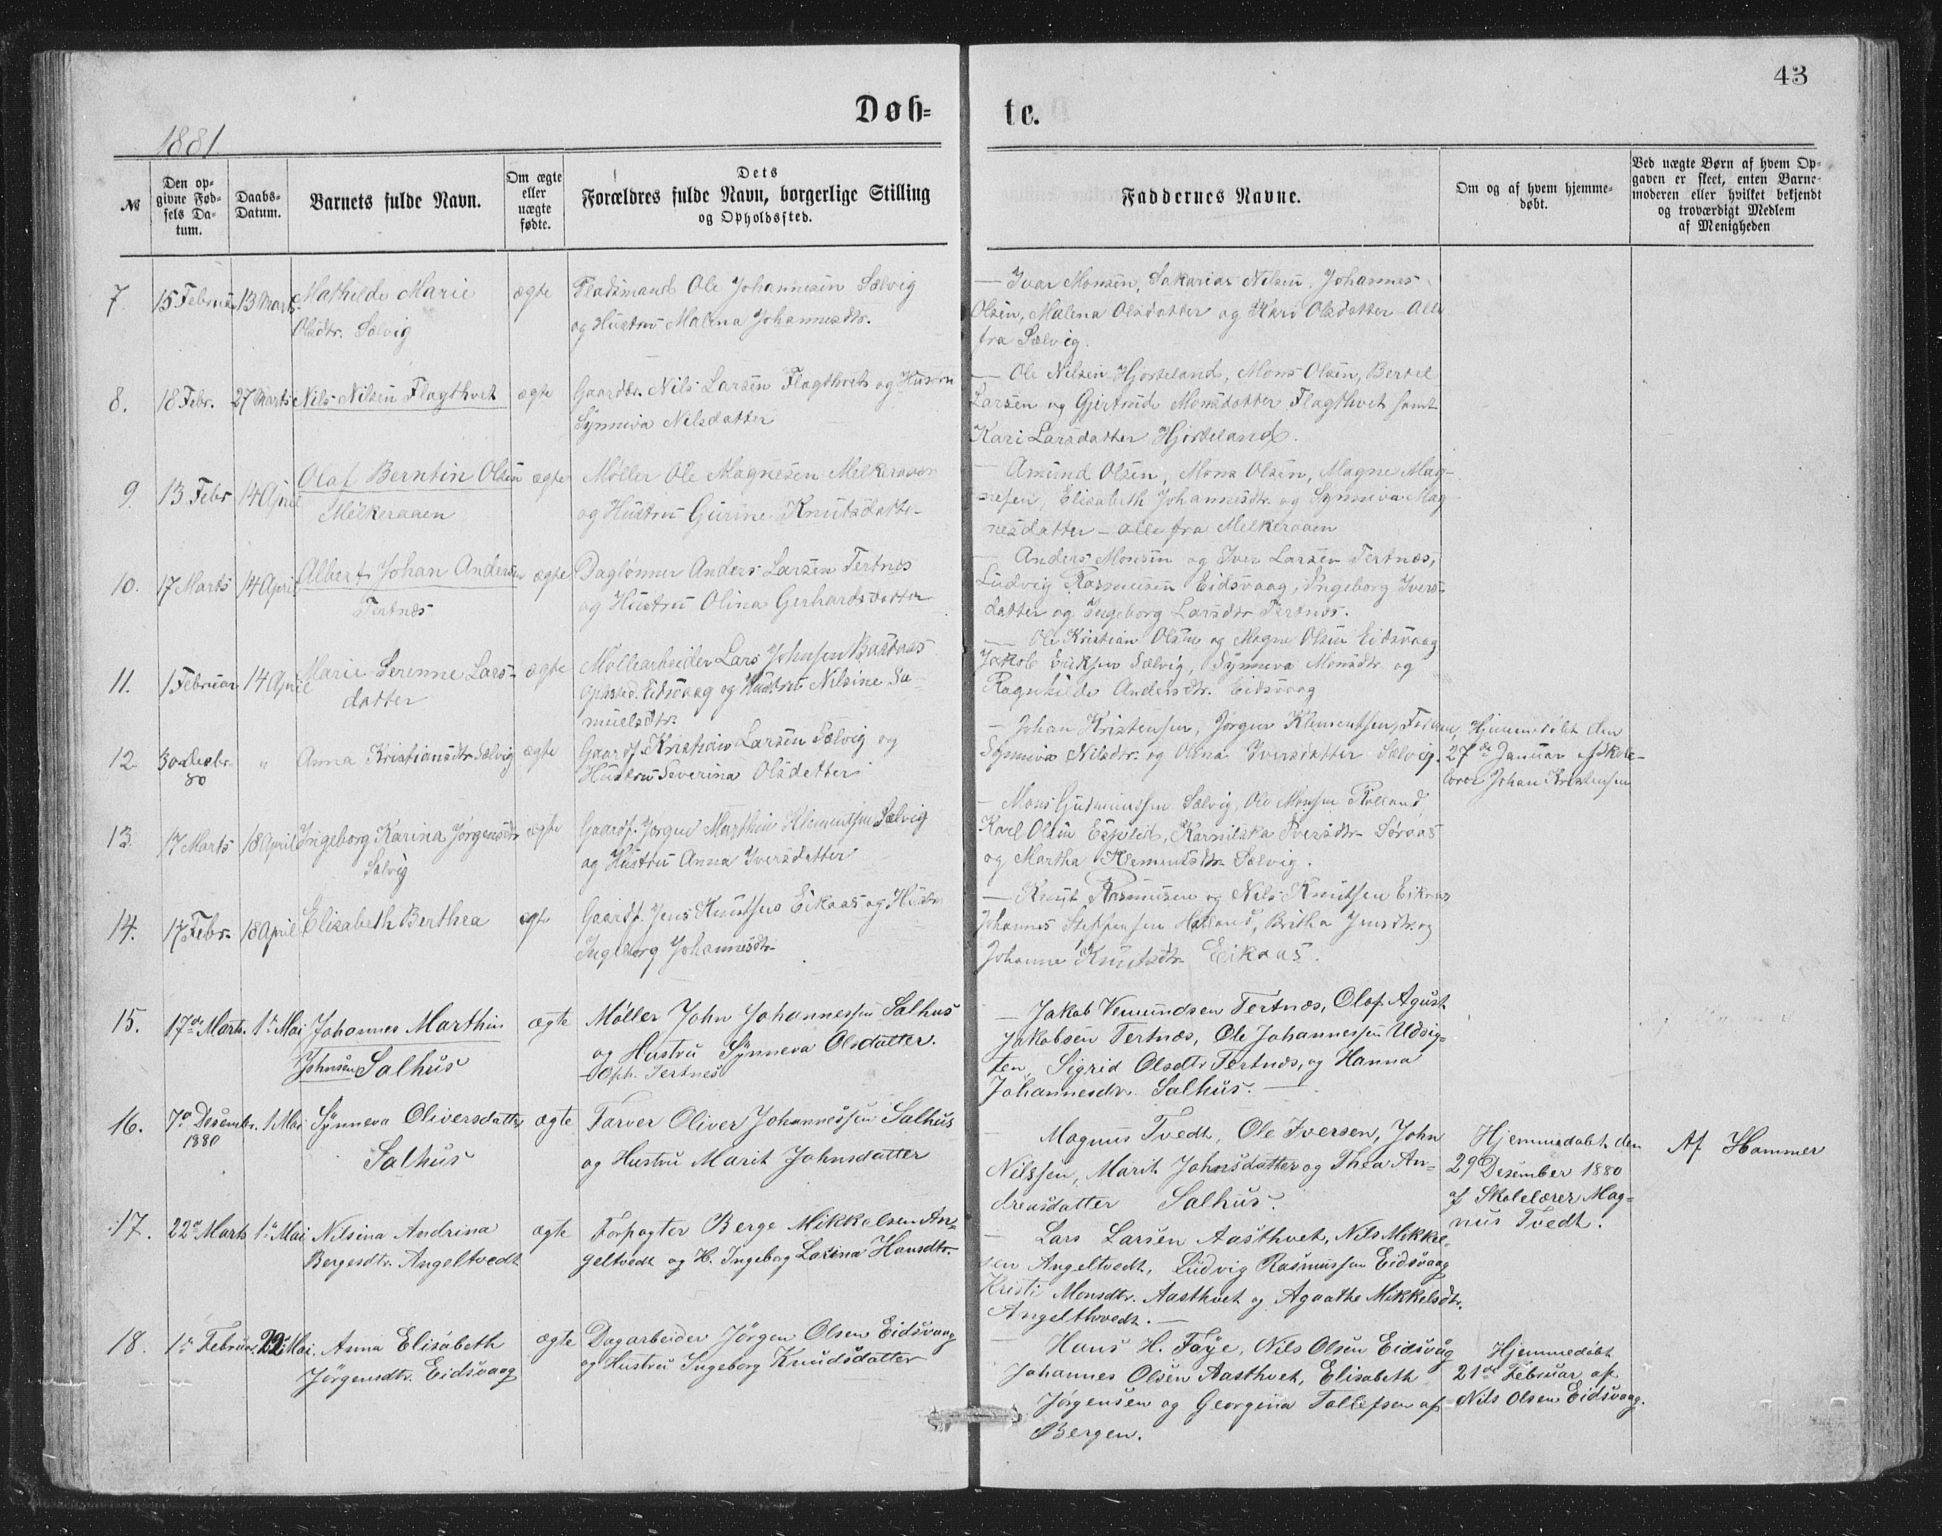 43
Døb=
te.
1881
№
Den op=
givne Fød=
sels Da=
tum.
Daabs=
Datum.
Barnets fulde Navn.
Om ægte
eller
uægte
fødte.
Dets
Forældres fulde Navn, borgerlige Stilling
og Opholdssted.
Faddernes Navne.
Om og af hvem hjemme=
døbt.
Ved uægte Børn af hvem Op=
gaven er skeet, enten Barne=
moderen eller hvilket bekjendt
og troværdigt Medlem
af Menigheden
7. 15 Februar 13 Marts Mathilde Marie ægte Pladsmand Ole Johannesen Sælvig
Olsdtr. Sælvig og Hustru Malena Johannesdtr.
— Ivar Monsen, Sakarias Nilsen, Johannes
Olsen, Malena Olsdatter og Kari Olsdatter – Alle
fra Sælvig.
8. 18 Febr. 27 Marts Nils Nilsen Flagthvet ægte Gaardbr. Nils Larsen Flagthvet og Hustru
Synneva Nilsdatter
— Ole Nilsen Hjorteland, Mons Olsen, Bertel
Larsen og Gjertrude Monsdatter Flagthvet samt
Kari Larsdatter Hjorteland.
9. 13 Febr 14 April Olaf Berntin Olsen ægte Møller Ole Magnesen Melkeraaen
Melkeraaen og Hustru Gurine Knutsdatter
— Amund Olsen, Mons Olsen, Magne Mag-
nesen, Elisabeth Johannesdtr. og Synneva Mag
nesdatter – alle fra Melkeraaen
10. 17 Marts 14 April Albert Johan Andersen ægte Daglønner Anders Larsen Tertnes
Tertnæs og Hustru Olina Gerhardsdatter
— Anders Monsen og Iver Larsen Tertnæs,
Ludvig Rasmussen Eidsvaag, Ingeborg Ivers-
datter og Ingeborg Larsdtr Tertnes.
11. 1 Februar 14 April Marie Serenne Lars- ægte Møllearbeider Lars Johnsen
datter Opholdsst. Eidsvaag og Hustru Nilsine Sa-
muelsdtr.
— Ole Kristian Olsen og Magne Olsen Eidsvaag
Jakob Eriksen Sælvig, Synneva Monsdtr. og
Ragnhilde Andersdtr. Eidsvaag
12. 30 Decbr. 80 " Anna Kristiansdtr Sælvig ægte Gaardf. Kristian Larsen Sælvig og
Hustru Severina Olsdatter
— Johan Kristensen, Jørgen Klementsen,
Synneva Nilsdtr. og Olina Iversdatter Sælvig.
Hjemmedøbt den
27de Januar af Skole-
lærer Johan Kristensen
13. 17 Marts 18 April Ingeborg Karina Jørgensdtr ægte Gaardf. Jørgen Marthin Klementsen Sælvig
Salvig og Hustru Anna Iversdatter
— Mons Gudmundsen Sælvig, Ole Monsen Rolland
Karl Olsen Espelid, Iversdtr. Søraas
og Martha Klementsdtr Sælvig.
14. 17 Febr. 18 April Elisabeth Berthea ægte Gaardf. Jens Knutsen Eikaas og Hustru
Ingeborg Johannesdtr
— Knut Rasmussen og Nils Knutsen Eikaas
Johannes Steffensen Hølland, Britha Jensdtr. og
Johanne Knutsdtr Eikaas.
15. 17de Marts. 1te Mai Johannes Marthin ægte Møller John Johannessen Salhus
Johnsen Salhus og Hustru Synneva Olsdatter.
Oph. Tertnes
— Jakob Vemundsen Tertnæs, Olaf Agust
Jakobsen Tertnæs, Ole Johannessen Udsig-
ten, Sigrid Olsdtr Tertnæs, og Hanna
Johannesdtr. Salhus. —
16. 7de Desembr. 1880 1 Mai Synneva Oliversdatter ægte Farver Oliver Johannessen Salhus
Salhus og Hustru Marit Johnsdatter
— Magnus Tvedt, Ole Iversen, John
Nilssen, Marit Johnsdatter og Thea An-
drensdatter Salhus.
Hjemmedøbt den
29 Desember 1880
af Skolelærer Mag-
nus Tvedt.
Af Hammer
17. 22de Marts 1te Mai Nilsina Andrina ægte Forpagter Berge Mikkelsen An-
Bergesdtr. Angeltvedt geltvedt og H. Ingeborg Larina Hansdtr.
— Lars Larsen Aasthvet, Nils Mikkel-
sen Angeltvedt, Ludvig Rasmussen Eidsvaag
Kristi Monsdtr. Aasthvet og Agaathe Mikkelsdtr.
Angelthvedt. —
18. 1te Februar. 22 Mai. Anna Elisabeth ægte Dagarbeider Jørgen Olsen Eidsvaag
Jørgensdtr. Eidsvaag og Hustru Ingeborg Knudsdatter
— Hans H. Faye, Nils Olsen Eidsvåg
Johannes Olsen Aasthvet, Elisabeth
Jørgensen og Georgina Tollefsen af
Bergen.
Hjemmedøbt
21de Februar af
Nils Olsen Eidsvaag.